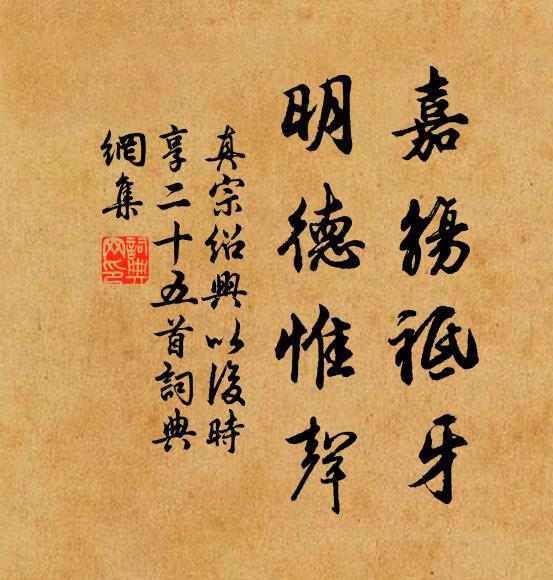 嘉觴祗牙
明德惟聲
真宗紹興以後時
享二十五首詞典
網集
詞典網印